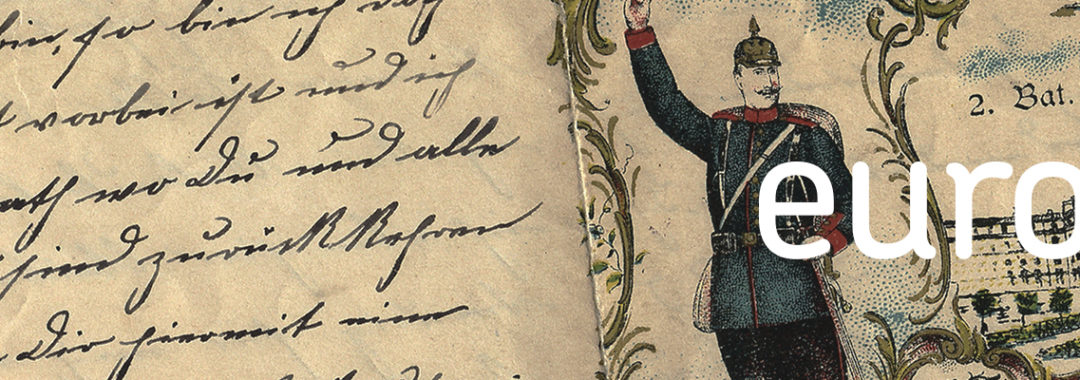 bin, so bin ich
vorbei ist und ich
wo Du und alle
sind zurückkehren
Dir hiermit eine
2. Bat.
euro